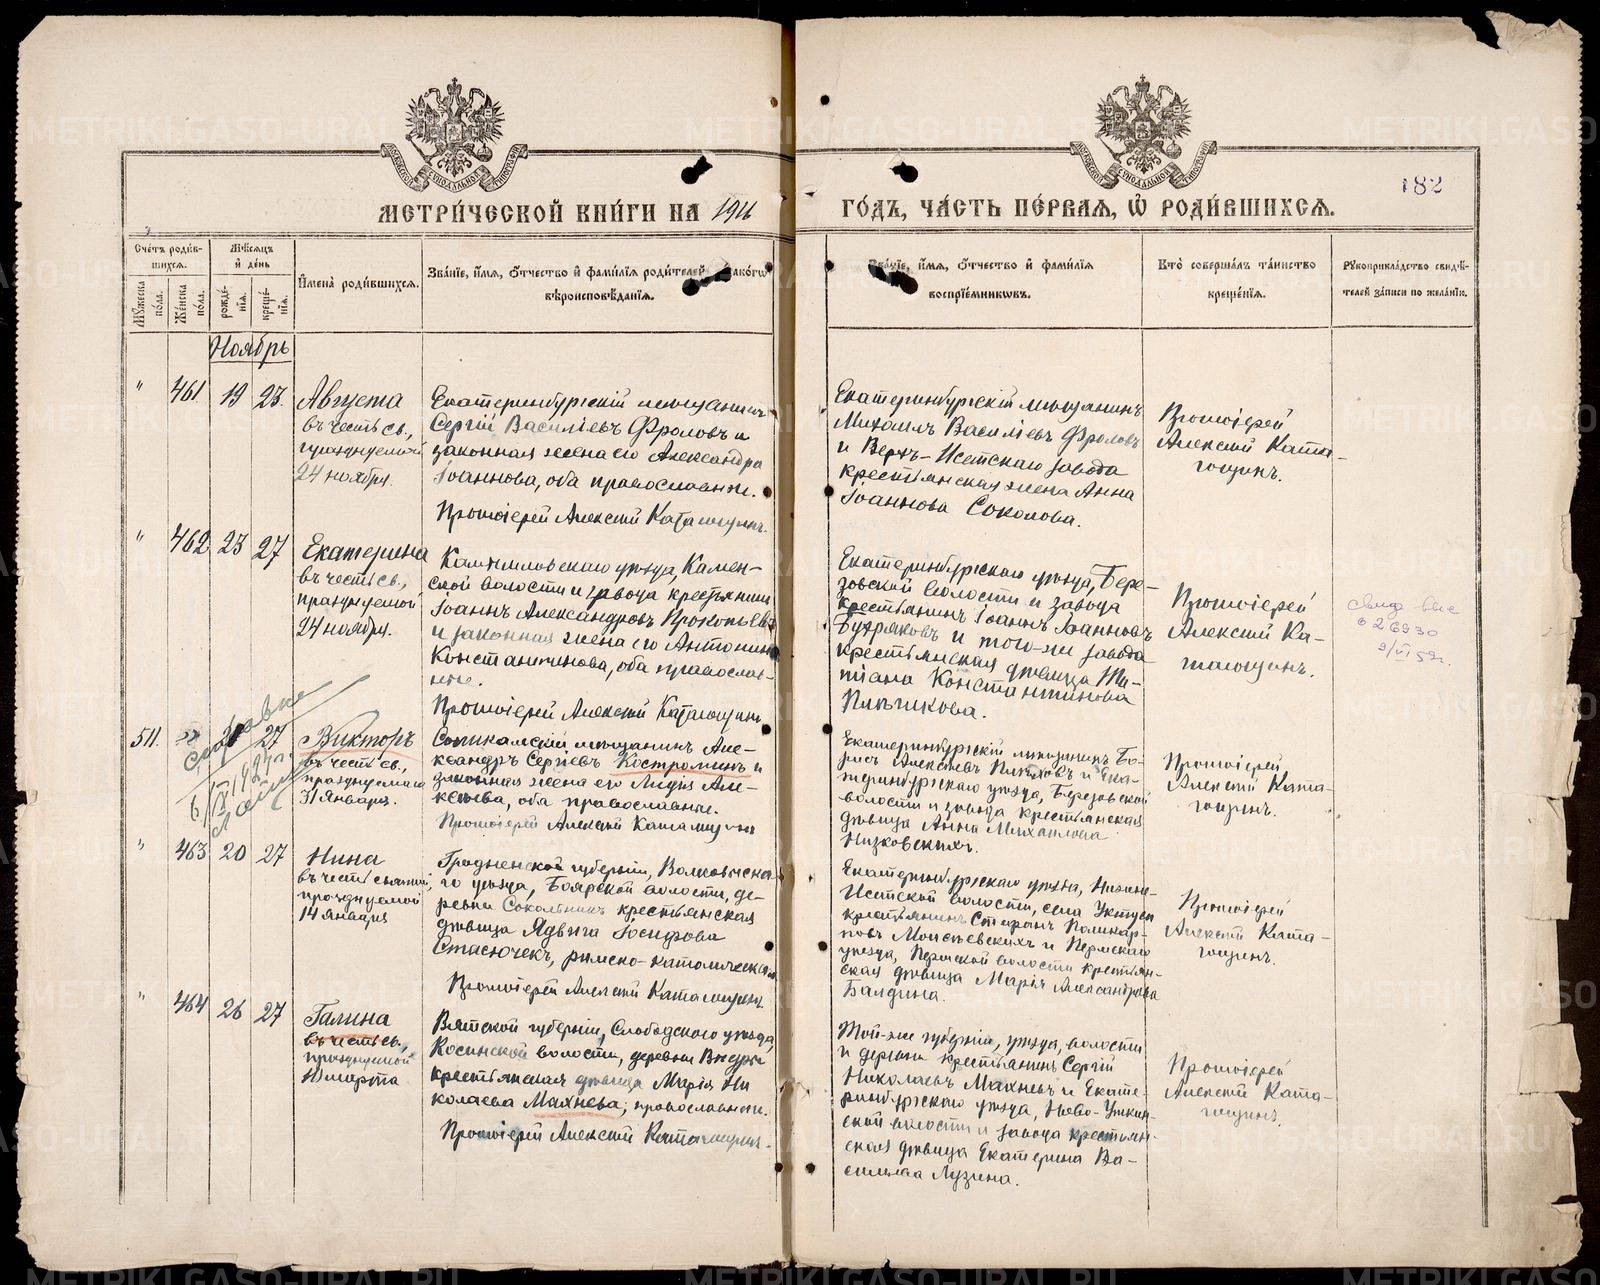 МЕТРИ́ЧЕСКОЙ КНИ́ГИ НА 1911
ГО́ДЪ, ЧА́СТЬ ПЕ́РВАЯ, Ѽ РОДИ́ВШИХСЯ.
182
Сче́тъ роди́в-
шихся.
Мѣ́сяцъ
и҆ де́нь
И҆мена̀ роди́вшихся.
Зва́нїе, и҆́мя, ѻ҆́тчество и҆ фами́лїя роди́телей
вѣроисповѣ́данїя.
Зва́нїе, и҆́мя, ѻ҆́тчество и҆ фами́лїя
воспрїе́мникѡвъ.
Кто̀ соверша́лъ та́инство
креще́нїя.
Рꙋкоприкла́дство свидѣ́-
телей за́писи по жела́нїю.
Мꙋ́жеска
по́ла.
Же́нска
по́ла.
рожде́-
нїя.
креще́-
нїя.
Ноябрь
" 461 19 23. Августа
въ честь св.,
празднуемой
24 ноября.
Екатеринбургскій мѣщанинъ
Сергій Василіевъ Фроловъ и
законная жена его Александра
Іоаннова, оба православные.
Протоіерей Алексій Каташинъ.
Екатеринбургскій мѣщанинъ
Михаилъ Василіевъ Фроловъ
и Верхъ-Исетскаго завода
крестьянская жена Анна
Іоаннова Соколова.
Протоіерей
Алексій Ката-
" 462 23 27 Екатерина
въ честь св.,
празднуемой
24 ноября.
Камышловскаго уѣзда, Камен-
ской волости и завода крестьянинъ
Іоаннъ Александровъ Прокопьевъ
и законная жена его Антонина
Константинова, оба православ-
ные.
Протоіерей Алексій
Екатеринбургскаго уѣзда, Бере-
зовской волости и завода
крестьянинъ Іоаннъ Іоанновъ
и того-же завода
крестьянская дѣвица Та-
тіана Константинова
Протоіерей
Алексій Ка-
26930
9/VI 59г.
511. 27 Викторъ
въ честь св.,
празднуемаго
31 января.
Соликамскій мѣщанинъ Але-
ксандръ Сергіевъ Костроминъ и
законная жена его Лидія Але-
ксѣева, оба православные.
Протоіерей Алексій
Екатеринбургскій мѣщанинъ Бо-
рисъ Алексѣевъ и Ека-
теринбургскаго уѣзда, Березовской
волости и завода крестьянская
дѣвица Анна Михаилова
Низковскихъ.
Протоіерей
Алексій Ката-
Справка
6/IX 1924г.
" 463 20 27 Нина
въ честь святой,
празднуемой
14 января
Гродненской губерніи, Волковыска-
го уѣзда, Боярской волости, де-
ревни Сокольникъ крестьянская
дѣвица Ядвига Іосифова
Стасючекъ, римско-католическая
Протоіерей Алексій
Екатеринбургскаго уѣзда, Нижне-
Исетской волости, села Уктуса
крестьянинъ Стефанъ Поликар-
повъ Моисѣевскихъ и Пермскаго
уѣзда, Пермской волости крестьян-
ская дѣвица Марія Александрова
Балдина.
Протоіерей
Алексій Ката-
" 464 26 27 Галина
въ честь св.,
празднуемой
10 марта
Вятской губерніи, Слободского уѣзда,
Косинской волости, деревни
крестьянская дѣвица Марія Ни
колаева Махнева, православная.
Протоіерей Алексій
Той-же губерніи, уѣзда, волости
и деревни крестьянинъ Сергій
Николаевъ Махневъ и Екате-
ринбургскаго уѣзда, Ново-Уткин-
ской волости и завода крестьян-
ская дѣвица Екатерина Ва-
сильева Лузина.
Протоіерей
Алексій Ката-
METRIKI.GASO-URAL.RU